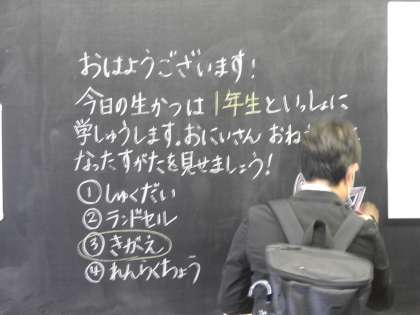 おはようございます!
今日の生かつは1年生といっしょに
学しゅうします。おにいさん おね
なったすがたを見せましょう!
①しゅくだい
②ランドセル
③きがえ
④れんらくちょう